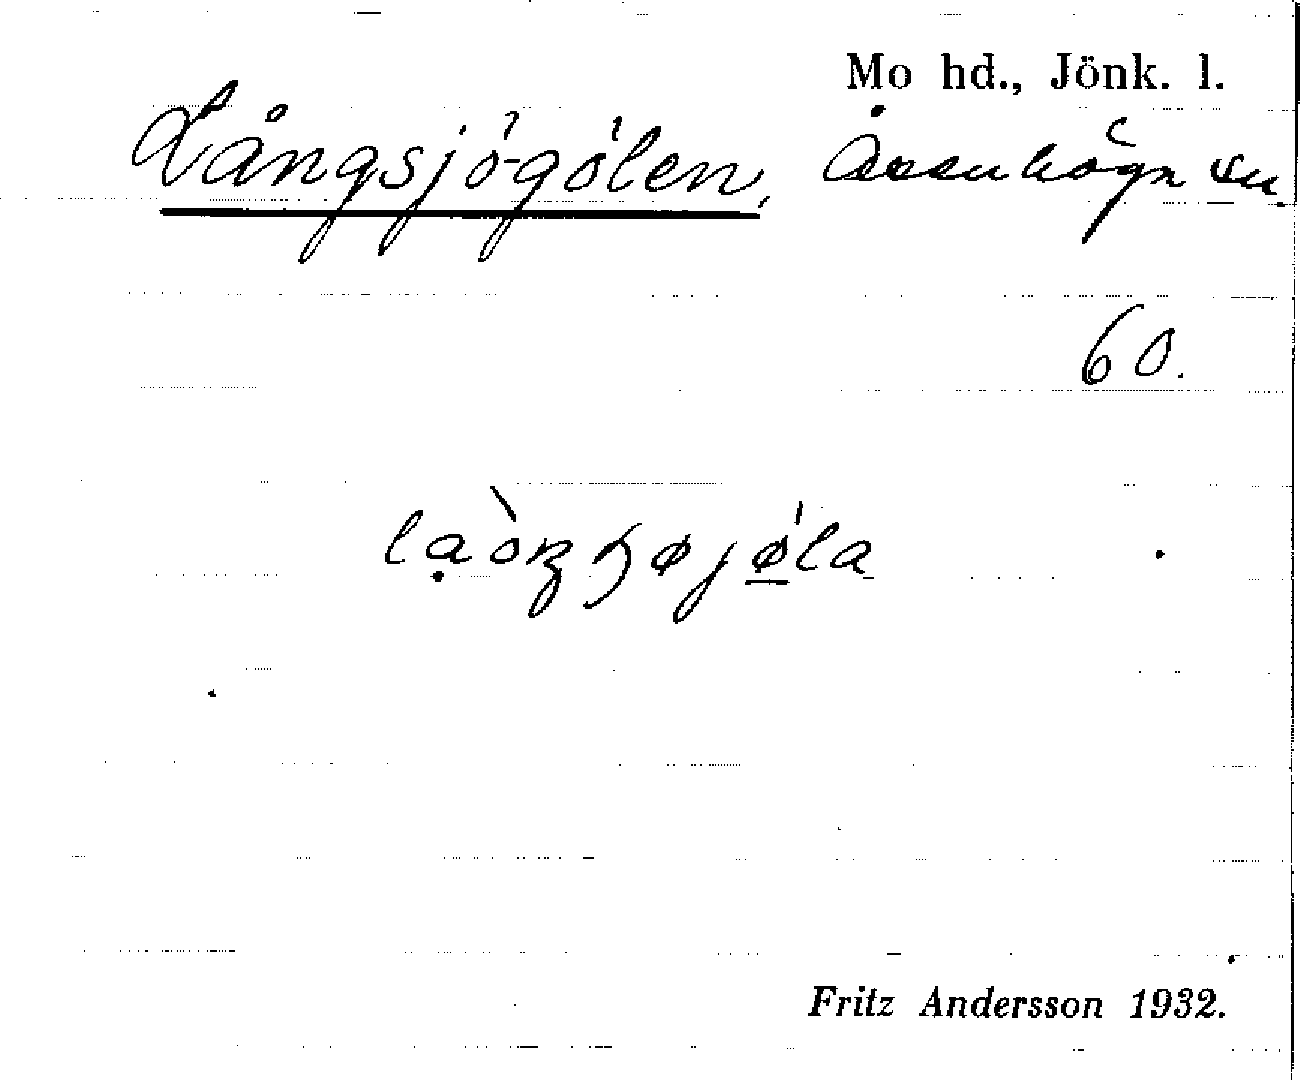 Mo hd., Jönk. l.
Långsjögölen, Åsenhöga sn.
60.
Fritz Andersson 1932.